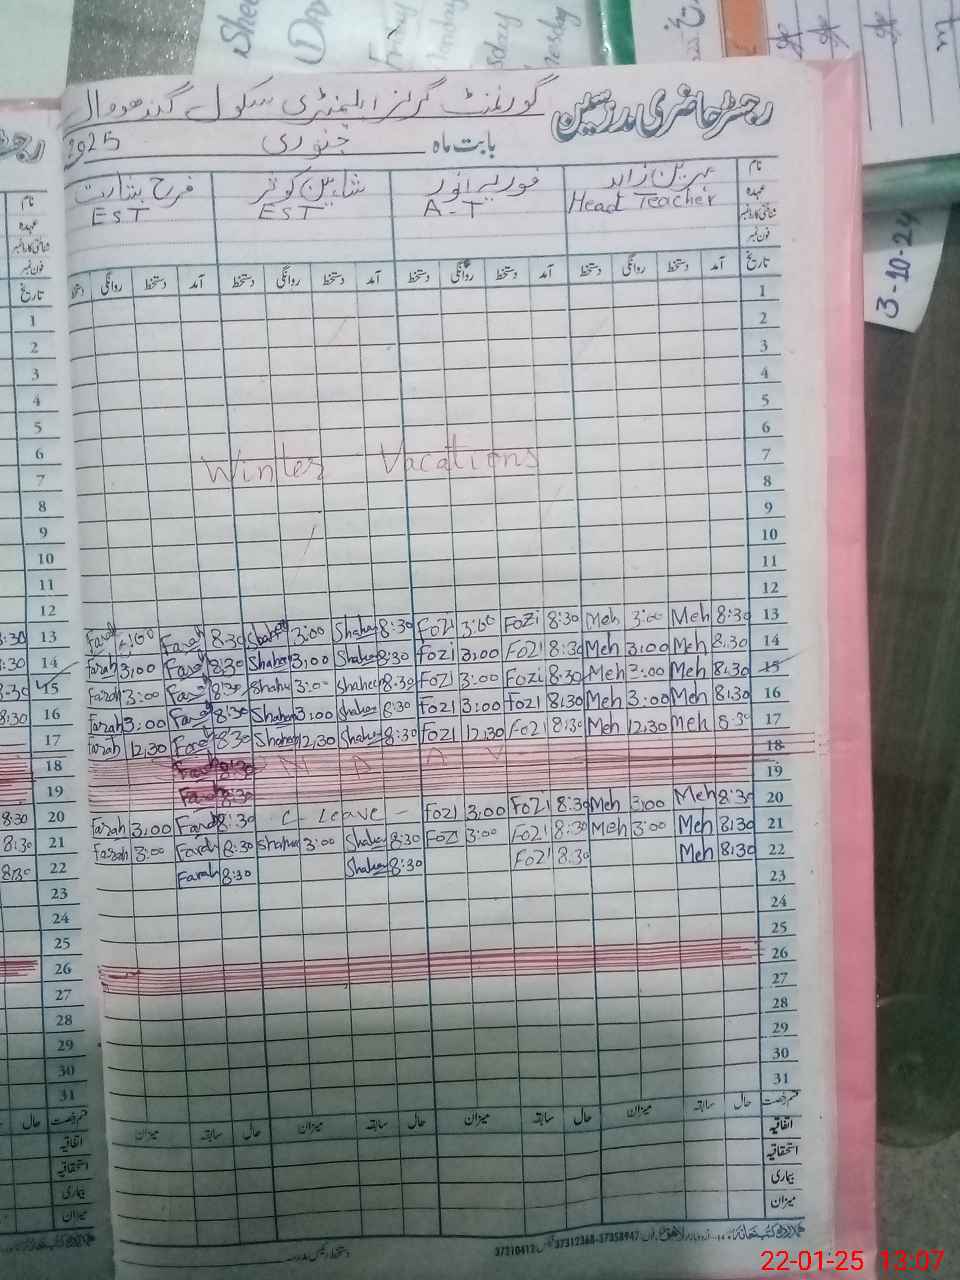 رجسٹر حاضری مدرسین گورنمنٹ گرلز ایلیمنٹری سکول گندھووال
بابت ماہ جنوری 2025
نام مہرین زاہد فوزیہ انور شاہین کوثر فرح بشارت
عہدہ Head Teacher A-T EST EST
شناختی کارڈ نمبر
فون نمبر
تاریخ آمد دستخط روانگی دستخط آمد دستخط روانگی دستخط آمد دستخط روانگی دستخط آمد دستخط روانگی
1
2
3
4
5
6
7
Winter Vacations
8
9
10
11
12
Farah 8:30 Shaheen 3:00 Shaheen 8:30 Fozi 3:00 Fozi 8:30 Meh 3:00 Meh 8:30 13
Farah 3:00 Farah 8:30 Shaheen 3:00 Shaheen 8:30 Fozi 3:00 Fozi 8:30 Meh 3:00 Meh 8:30 14
Farah 3:00 Farah 8:30 Shaheen 3:00 Shaheen 8:30 Fozi 3:00 Fozi 8:30 Meh 3:00 Meh 8:30 15
Farah 3:00 Farah 8:30 Shaheen 3:00 Shaheen 8:30 Fozi 3:00 Fozi 8:30 Meh 3:00 Meh 8:30 16
Farah 12:30 Farah 8:30 Shaheen 12:30 Shaheen 8:30 Fozi 12:30 Fozi 8:30 Meh 12:30 Meh 8:30 17
Farah 8:30 18
Farah 8:30 19
Farah 3:00 Farah 8:30 C- Leave - Fozi 3:00 Fozi 8:30 Meh 3:00 Meh 8:30 20
Farah 3:00 Farah 8:30 Shaheen 3:00 Shaheen 8:30 Fozi 3:00 Fozi 8:30 Meh 3:00 Meh 8:30 21
Farah 8:30 Shaheen 8:30 Fozi 8:30 Meh 8:30 22
23
24
25
26
27
28
29
30
31
قسم رخصت حال سابقہ میزان حال سابقہ میزان حال سابقہ میزان حال سابقہ میزان
اتفاقیہ
استحقاقیہ
بیماری
میزان
37310412 37312368-37358947
3-10-24
22-01-25 13:07